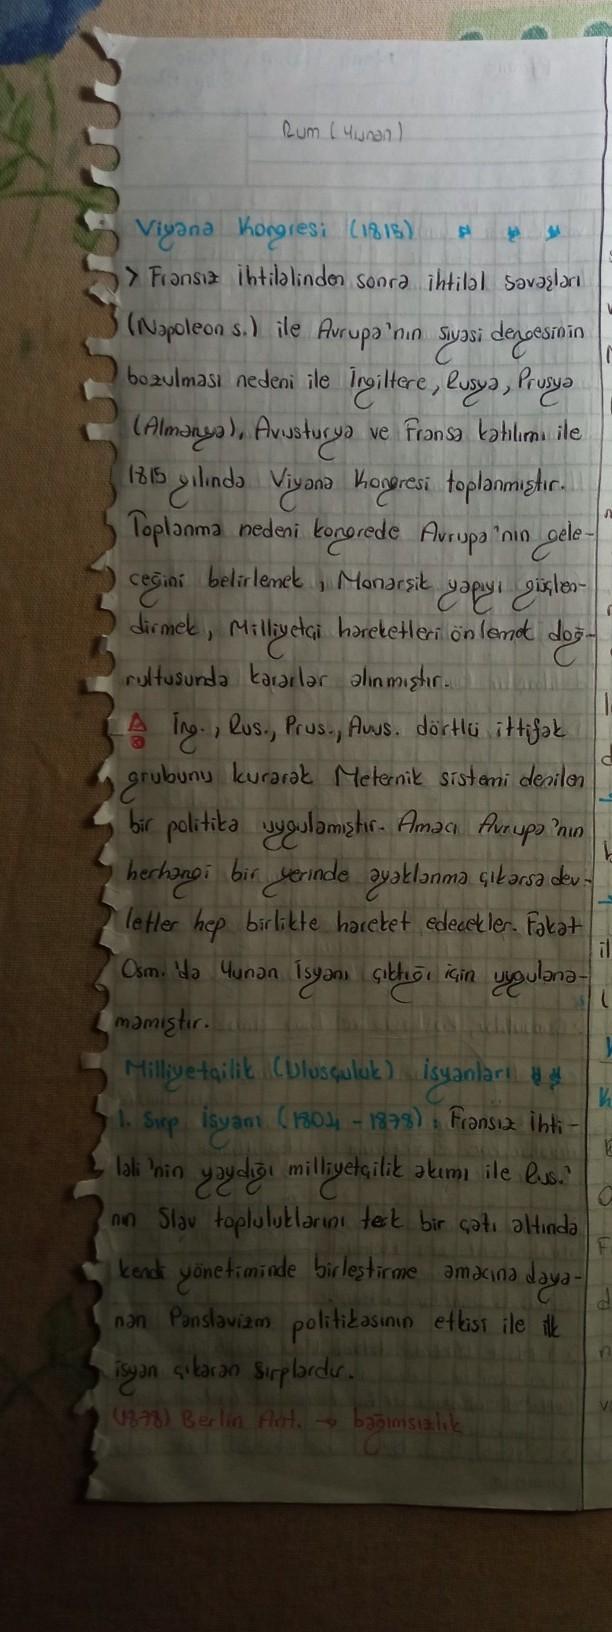 Rum (Yunan)
Viyana Kongresi (1815)
> Fransız İhtilalinden sonra ihtilal savaşları
(Napoleon s.) ile Avrupa'nın siyasi dengesinin
bozulması nedeni ile İngiltere, Rusya, Prusya
(Almanya), Avusturya ve Fransa katılımı ile
1815 yılında Viyana Kongresi toplanmıştır.
Toplanma nedeni kongrede Avrupa'nın gele-
ceğini belirlemek, Monarşik yapıyı güçlen-
dirmek, Milliyetçi hareketleri önlemek doğ-
rultusunda kararlar alınmıştır.
İng., Rus., Prus., Avus. dörtlü ittifak
grubunu kurarak Meternik sistemi denilen
bir politika uygulamıştır. Amacı Avrupa'nın
herhangi bir yerinde ayaklanma çıkarsa dev-
letler hep birlikte hareket edecekler. Fakat
Osm.'da Yunan İsyanı çıktığı için uygulana-
mamıştır.
Milliyetçilik (Ulusçuluk) İsyanları
1. Sırp İsyanı (1804 - 1878): Fransız İhti-
lali'nin yaydığı milliyetçilik akımı ile Rus.'
nın Slav topluluklarını tek bir çatı altında
kendi yönetiminde birleştirme amacına daya-
nan Panslavizm politikasının etkisi ile ilk
isyan çıkaran Sırplardır.
(1878) Berlin Ant. → bağımsızlık